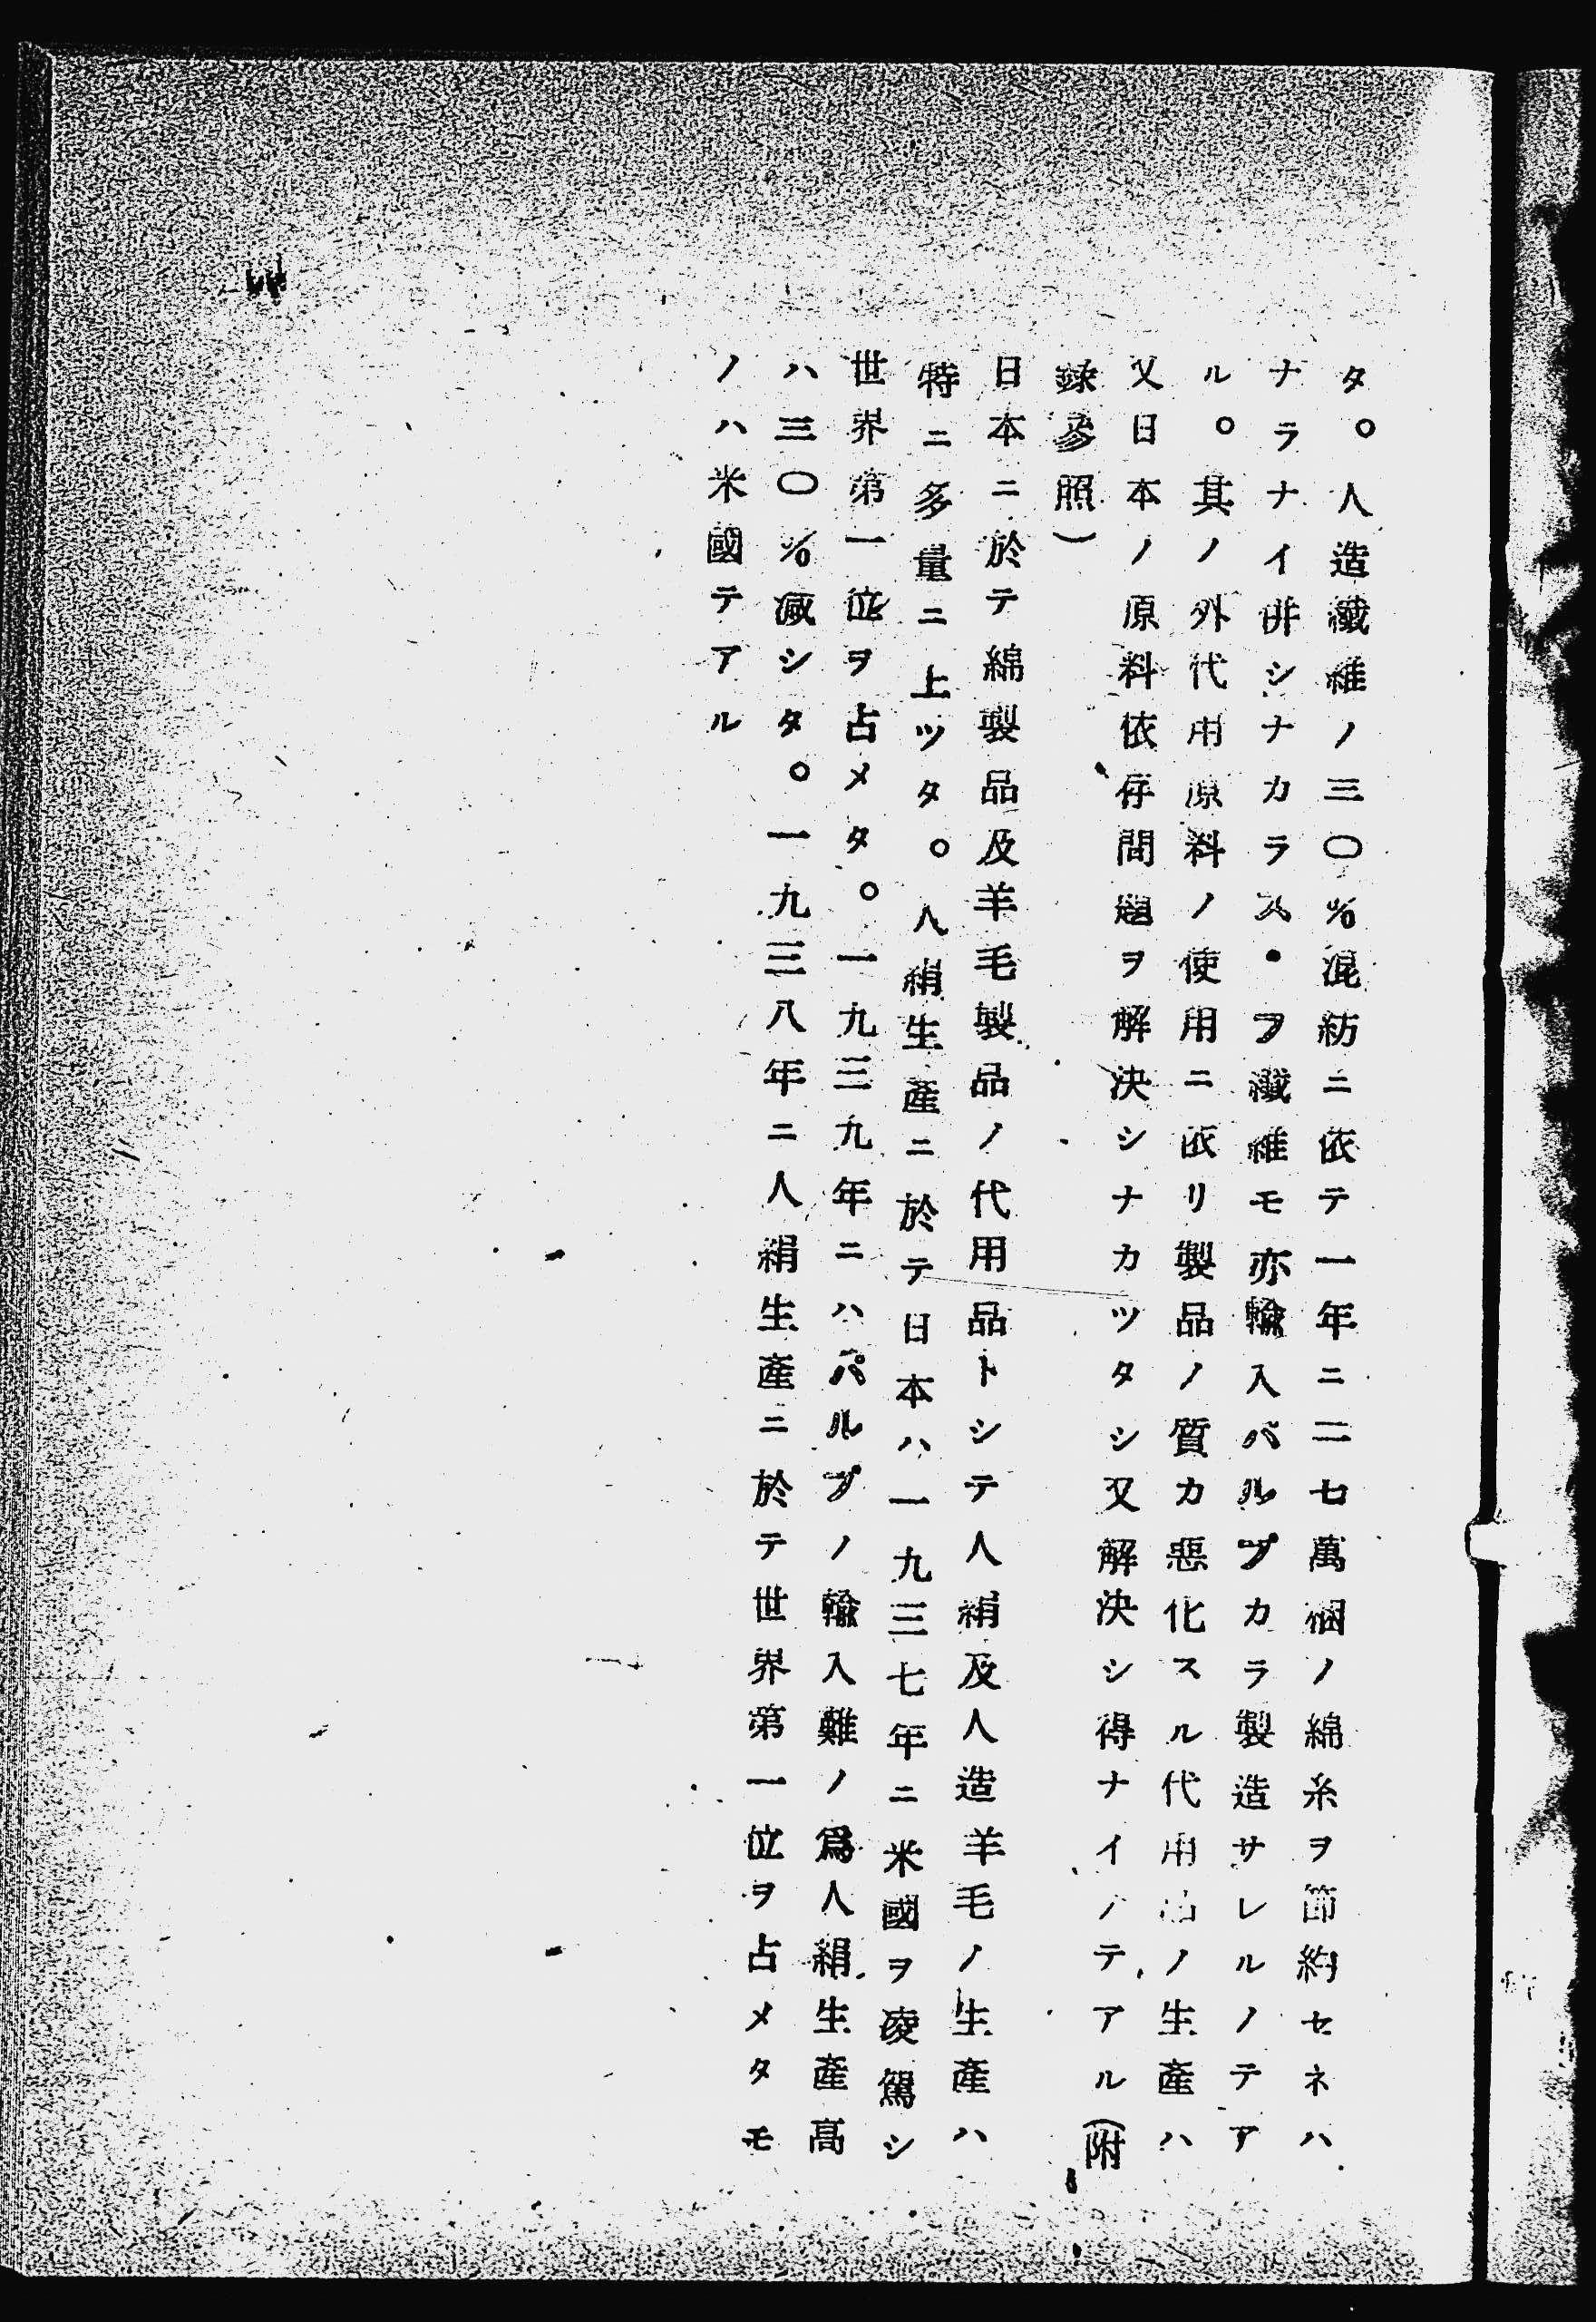 タ。人造纖維ノ三〇％混紡ニ依テ一年ニ二七萬梱ノ綿糸ヲ節約セネハ
ナラナイ併シナカラス・フ纖維モ亦輸入パルプカラ製造サレルノテア
ル。其ノ外代用原料ノ使用ニ依リ製品ノ質カ惡化スル代用品ノ生產ハ
又日本ノ原料依存問題ヲ解決シナカツタシ又解決シ得ナイノテアル（附
錄參照）
日本ニ於テ綿製品及羊毛製品ノ代用品トシテ人絹及人造羊毛ノ生產ハ
特ニ多量ニ上ツタ。人絹生產ニ於テ日本ハ一九三七年ニ米國ヲ凌駕シ
世界第一位ヲ占メタ。一九三九年ニハパルプノ輸入難ノ爲人絹生產高
ハ三〇％減シタ。一九三八年ニ人絹生產ニ於テ世界第一位ヲ占メタモ
ノハ米國テアル